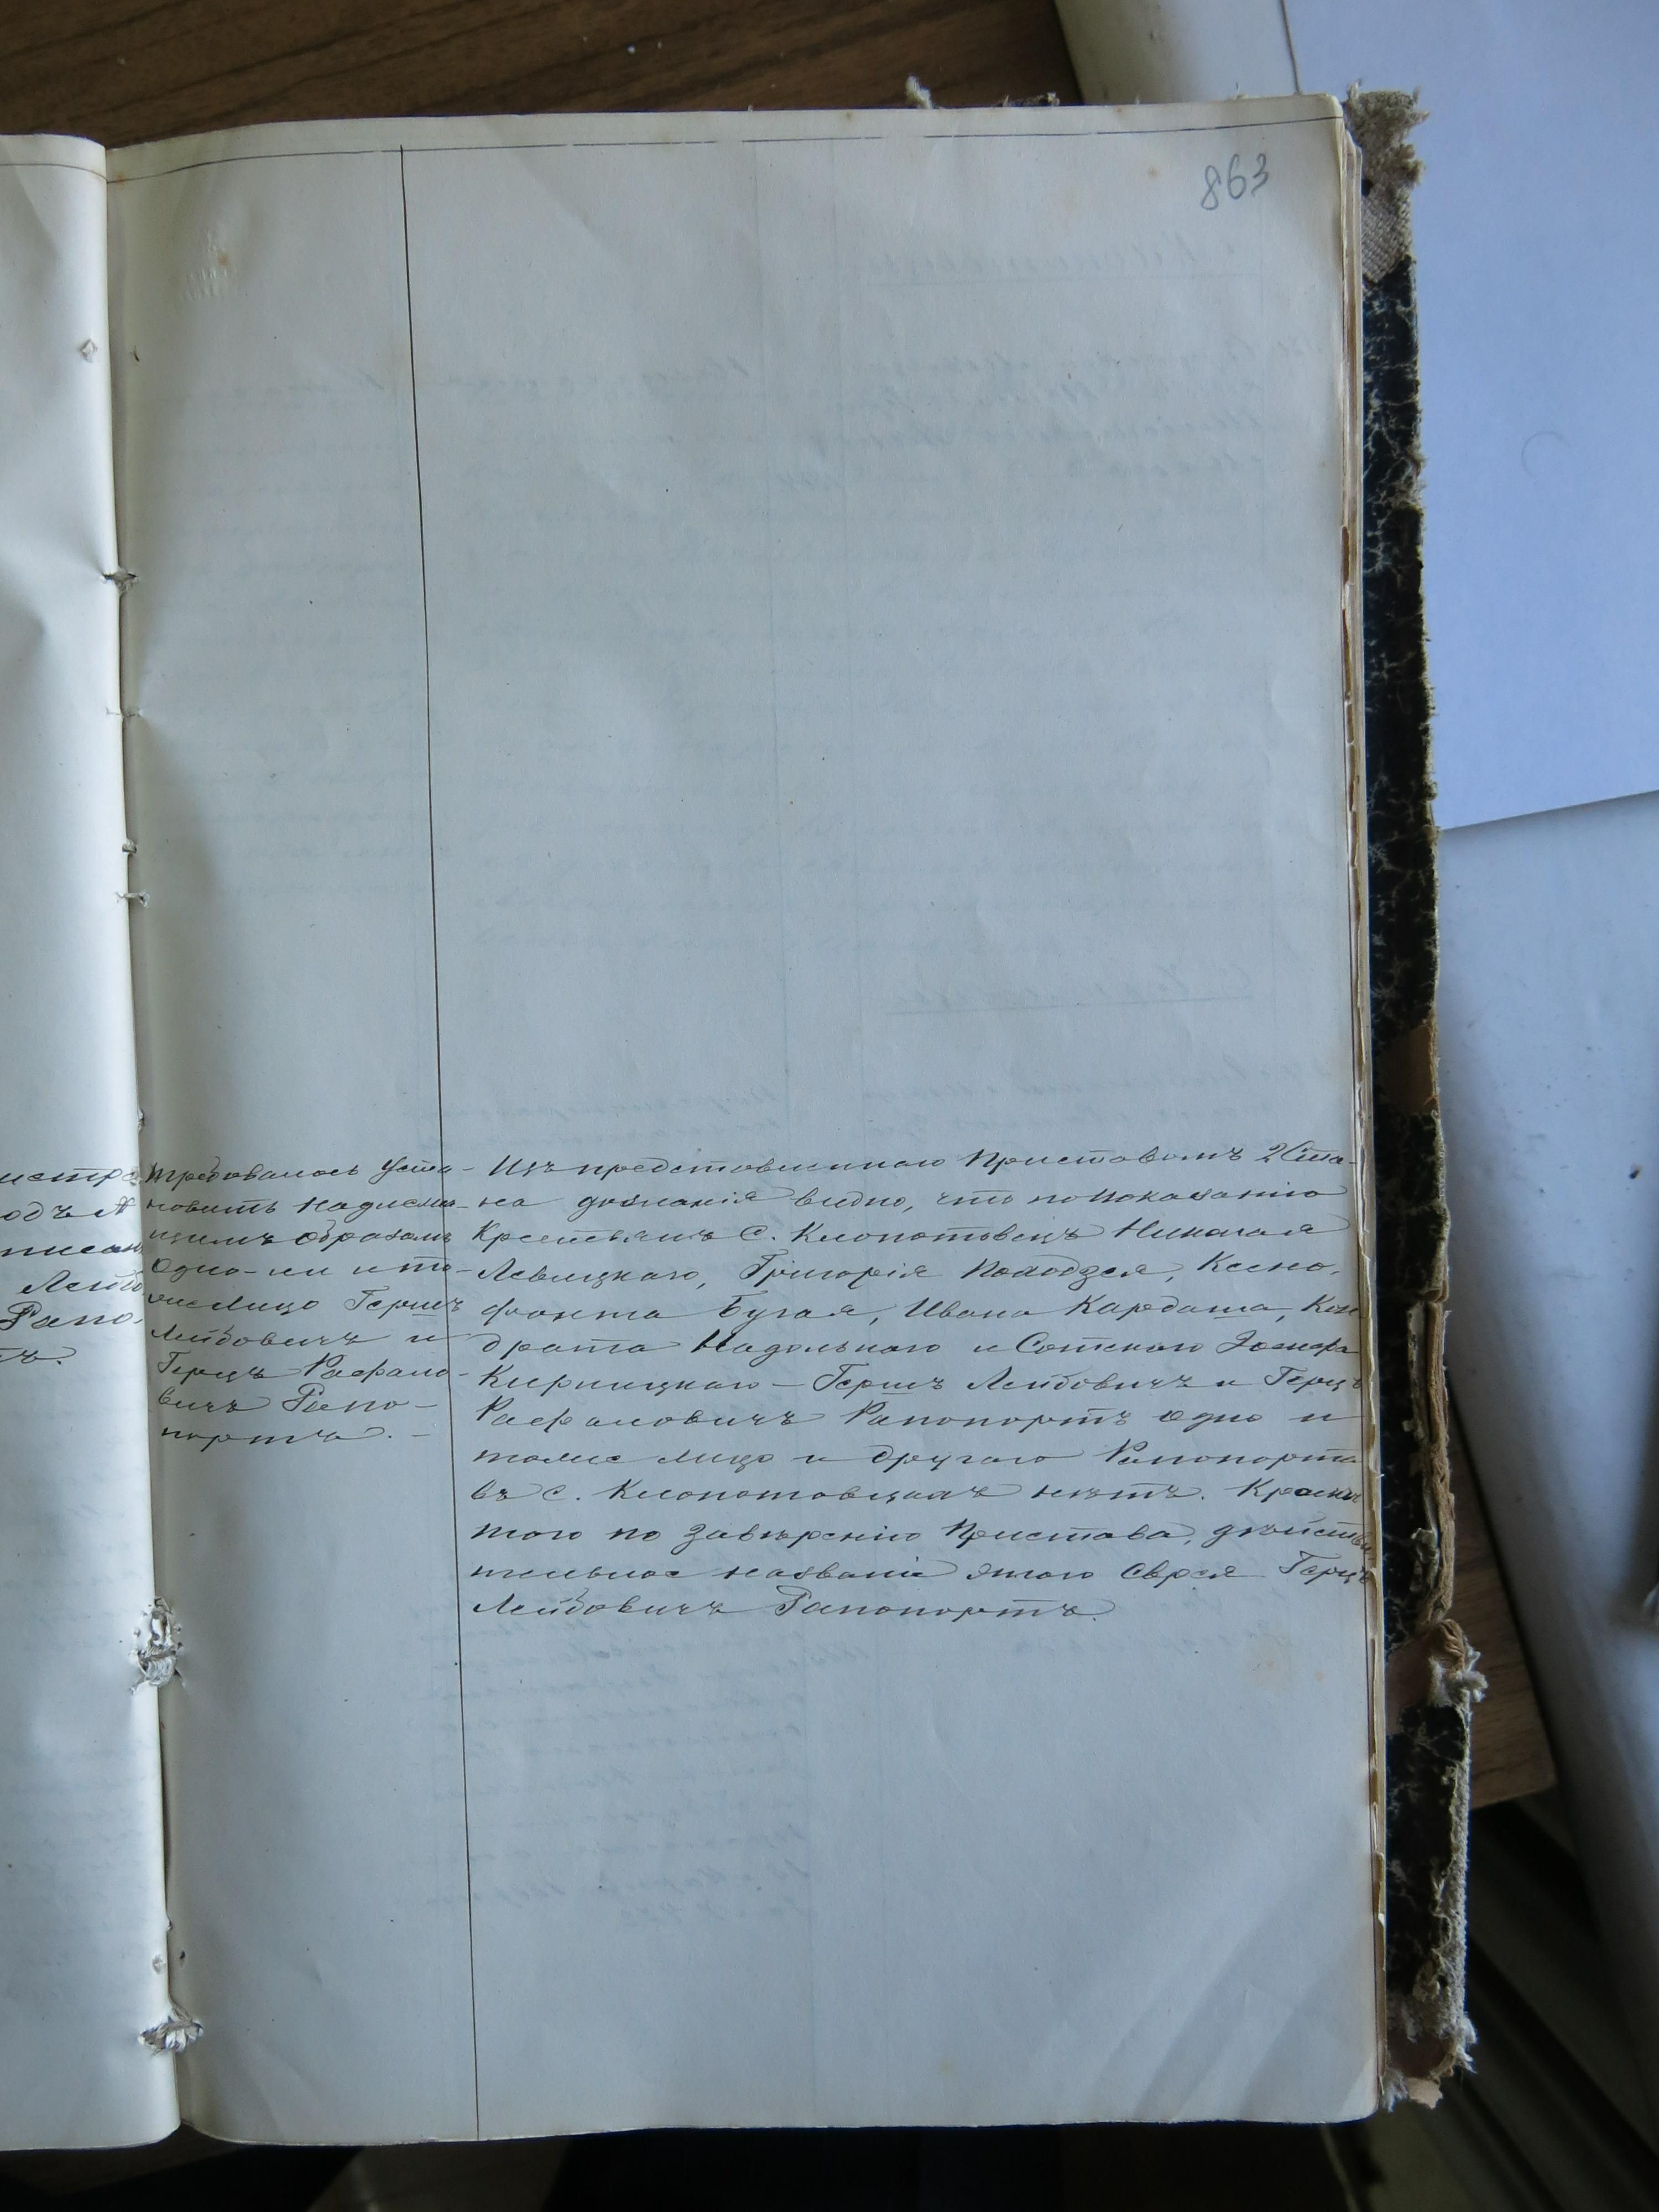 863
истра
одъ А
писан
Лейб
Рапо
тъ.
Требовалось Уста-
новить надлежа-
щимъ образомъ
Одно-ли и то-
же Лицо Гершъ
Лейбовичъ и
Герцъ Рафало-
вичъ Рапо-
портъ. -
Изъ представленнаго Приставомъ 2 Ста-
на дознанія видно, что по показанію
Крестьянъ С. Клопотовецъ Николая
Левицкаго, Григорія Колодзея, Ксено-
фонта Бугая, Ивана Кардаша, Кон
драта Надольнаго и Сотскаго Іосифа
Кирницкаго - Гершъ Лейбовичъ и Герцъ
Рафаловичъ Рапопортъ одно и
тоже лицо и другаго Рапопорта
въ с. Клопотовцахъ нѣтъ. Кромѣ
того по завѣренію Пристава, дѣйстви
тельное названіе этого Еврея Герцъ
Лейбовичъ Рапопортъ.